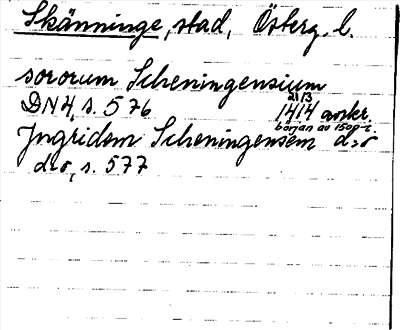 Skänninge, stad, Österg. l.
sororum Scheningensium
21/3
DN 4, s. 576 1414 avskr.
början av 1500-t.
Jngridem Scheningensem d:o
d:o, s. 577